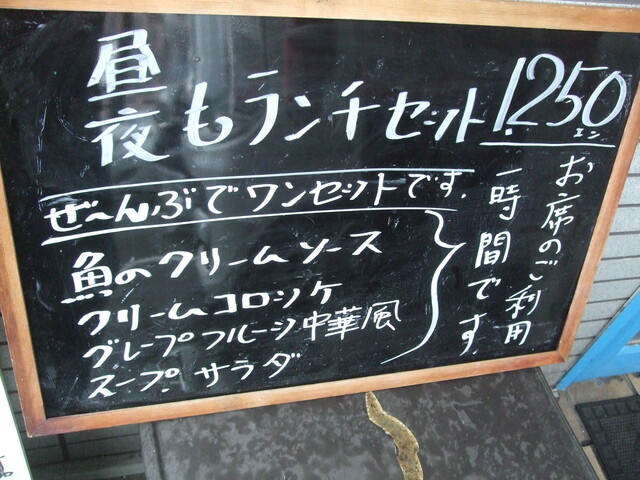 昼夜もランチセット 1.250エン
ぜ〜んぶでワンセットです.
魚のクリームソース
クリームコロッケ
グレープフルーツ中華風
スープ サラダ
お席のご利用
一時間です.